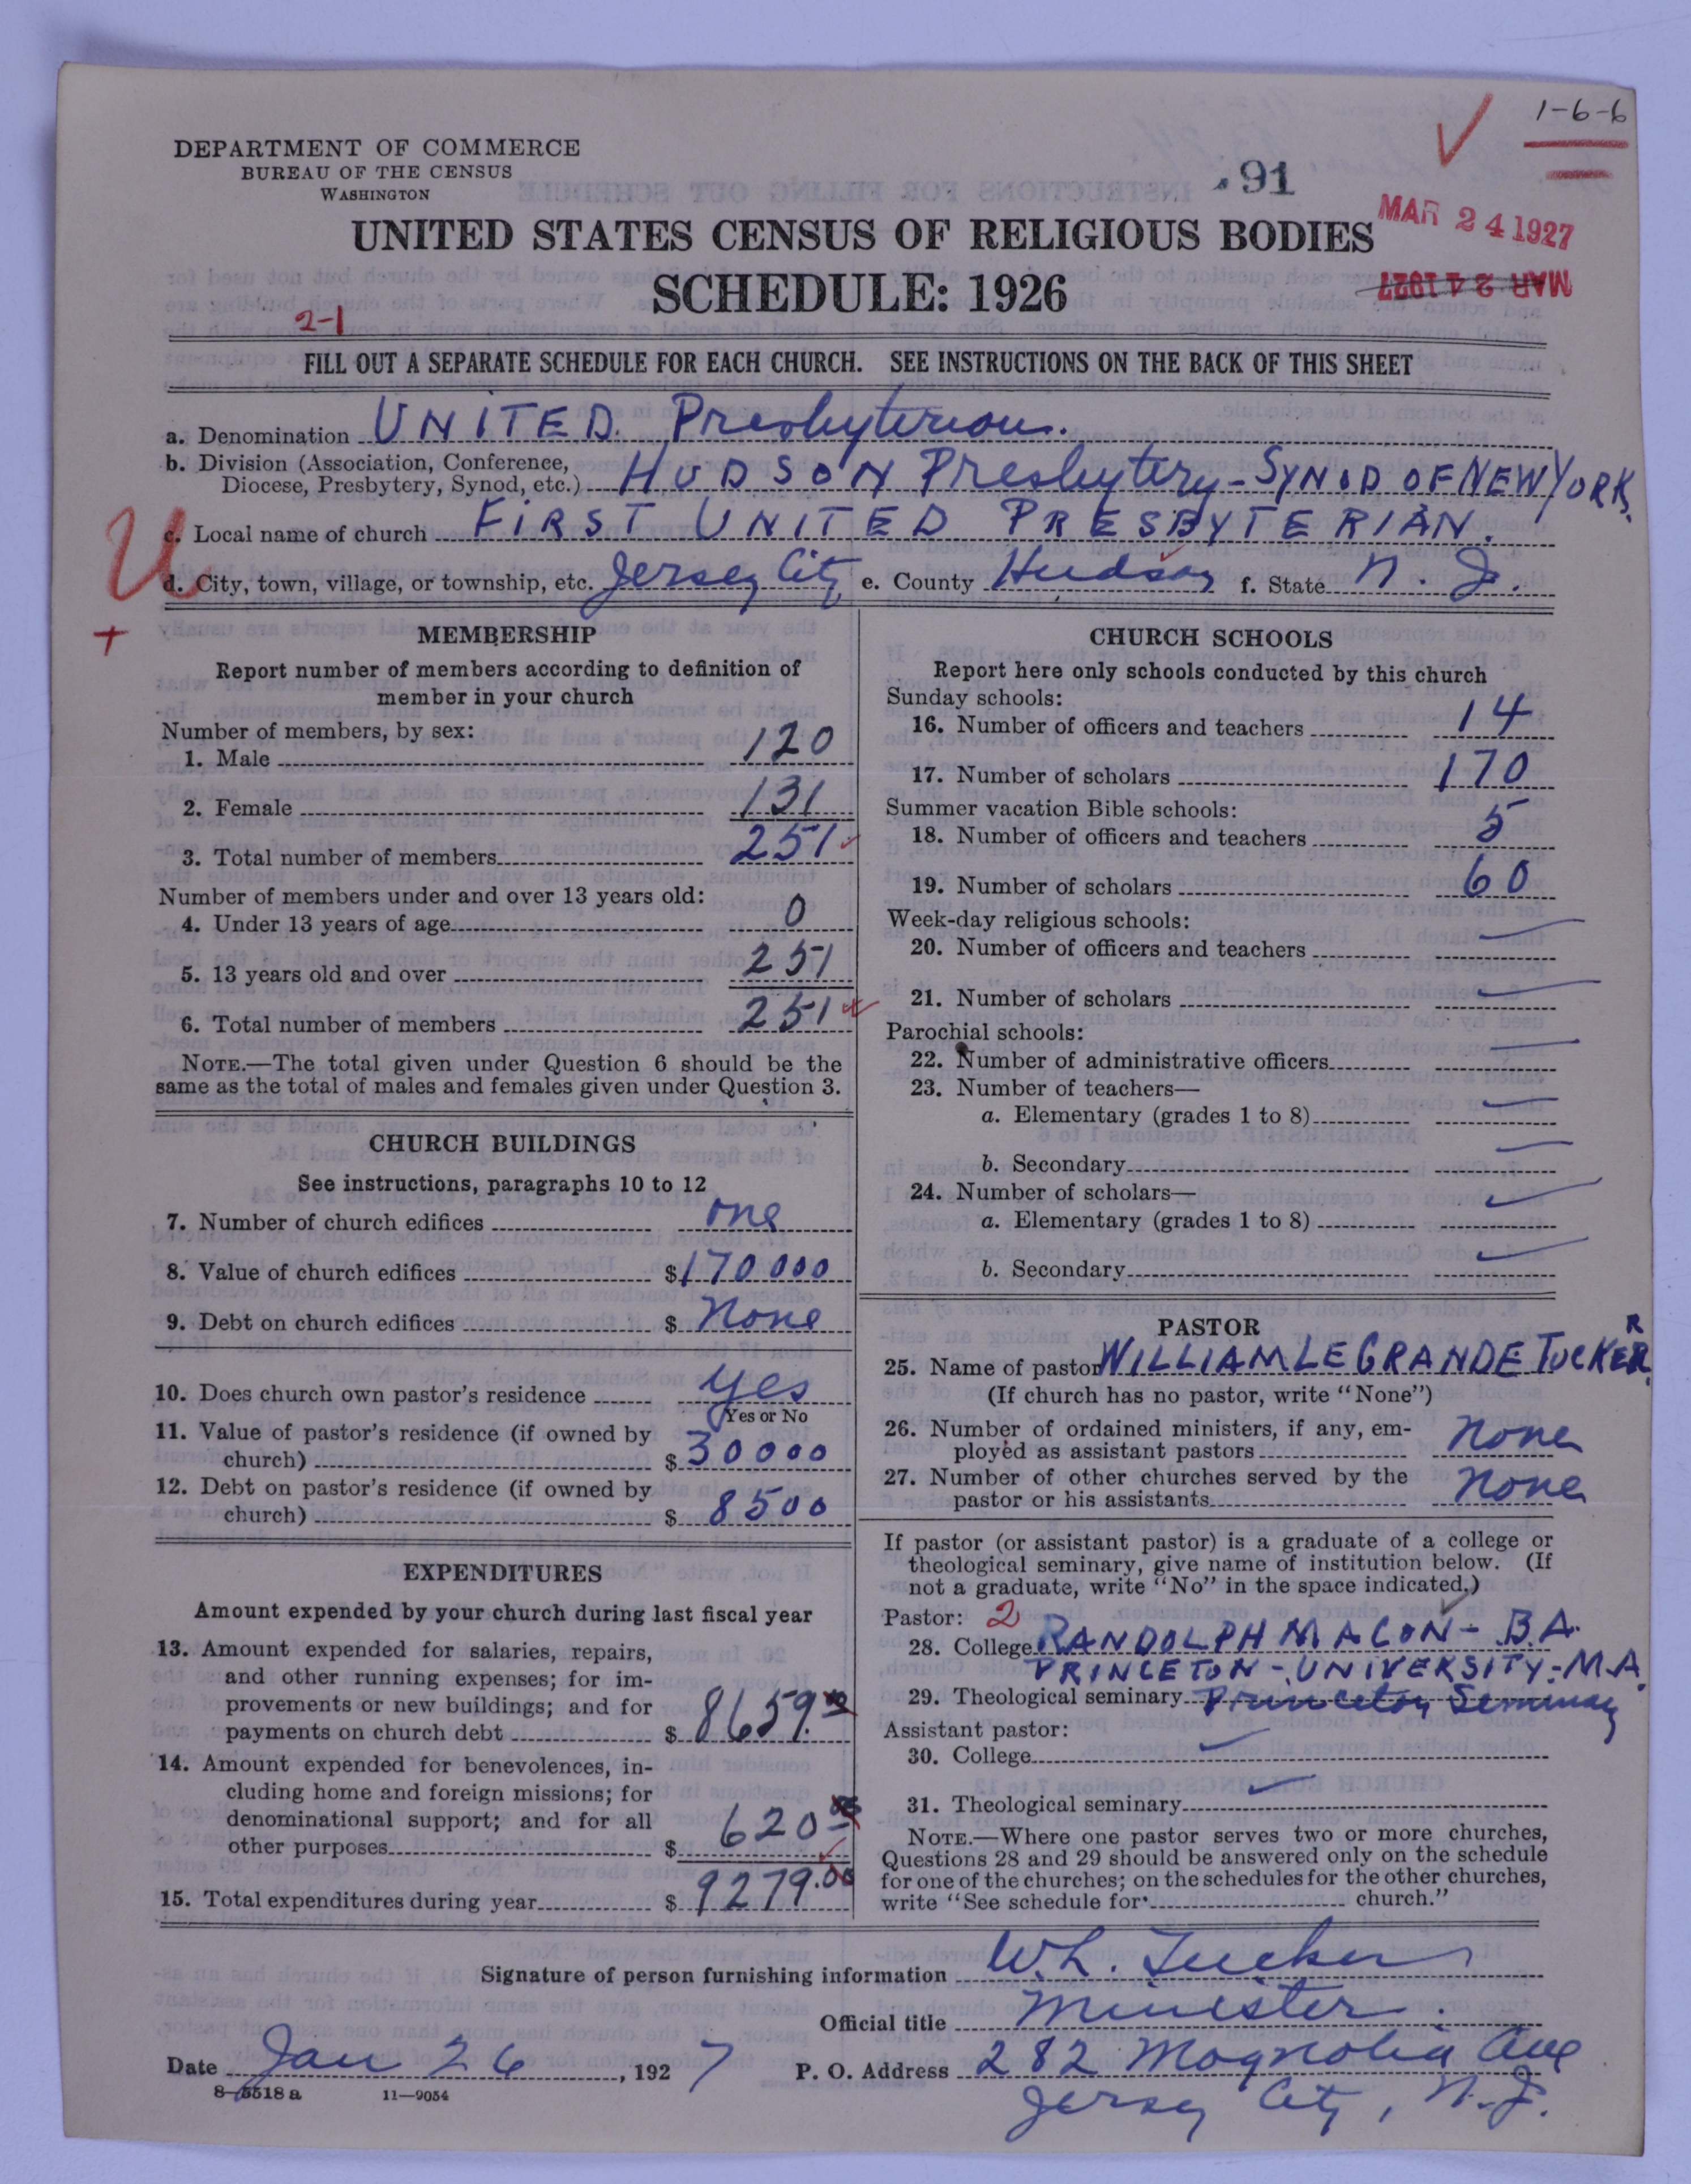 1-6-6
DEPARTMENT OF COMMERCE
BUREAU OF THE CENSUS
WASHINGTON
91
MAR 24 1927
MAR 24 1927
UNITED STATES CENSUS OF RELIGIOUS BODIES
SCHEDULE: 1926
2-1
FILL OUT A SEPARATE SCHEDULE FOR EACH CHURCH. SEE INSTRUCTIONS ON THE BACK OF THIS SHEET
a. Denomination UNITED Presbyterian.
b. Division (Association, Conference,
Diocese, Presbytery, Synod, etc.) HUDSON Presbytery-SYNOD OF NEW YORK.
U
c. Local name of church FIRST UNITED PRESBYTERIAN.
d. City, town, village, or township, etc. Jersey City e. County Hudson f. State N. J.
MEMBERSHIP
Report number of members according to definition of
member in your church
Number of members, by sex:
1. Male 120
2. Female 131
3. Total number of members 251
Number of members under and over 13 years old:
4. Under 13 years of age 0
5. 13 years old and over 251
6. Total number of members 251
NOTE.—The total given under Question 6 should be the
same as the total of males and females given under Question 3.
CHURCH BUILDINGS
See instructions, paragraphs 10 to 12
7. Number of church edifices one
8. Value of church edifices $170000
9. Debt on church edifices $ None
10. Does church own pastor's residence yes
Yes or No
11. Value of pastor's residence (if owned by
church) $ 30000
12. Debt on pastor's residence (if owned by
church) $ 8500
EXPENDITURES
Amount expended by your church during last fiscal year
13. Amount expended for salaries, repairs,
and other running expenses; for im-
provements or new buildings; and for
payments on church debt $ 8659.00
14. Amount expended for benevolences, in-
cluding home and foreign missions; for
denominational support; and for all
other purposes $ 620.00
15. Total expenditures during year $ 9279.00
CHURCH SCHOOLS
Report here only schools conducted by this church
Sunday schools:
16. Number of officers and teachers 14
17. Number of scholars 170
Summer vacation Bible schools:
18. Number of officers and teachers 5
19. Number of scholars 60
Week-day religious schools:
20. Number of officers and teachers
21. Number of scholars
Parochial schools:
22. Number of administrative officers
23. Number of teachers—
a. Elementary (grades 1 to 8)
b. Secondary
24. Number of scholars—
a. Elementary (grades 1 to 8)
b. Secondary
PASTOR
25. Name of pastor WILLIAM LE GRANDE TUCKER.
R
(If church has no pastor, write "None")
26. Number of ordained ministers, if any, em-
ployed as assistant pastors None
27. Number of other churches served by the
pastor or his assistants None
If pastor (or assistant pastor) is a graduate of a college or
theological seminary, give name of institution below. (If
not a graduate, write "No" in the space indicated.)
Pastor: 2
28. College RANDOLPH MACON - B.A.
PRINCETON - UNIVERSITY - M.A.
29. Theological seminary Princeton Seminary
Assistant pastor:
30. College
31. Theological seminary
NOTE.—Where one pastor serves two or more churches,
Questions 28 and 29 should be answered only on the schedule
for one of the churches; on the schedules for the other churches,
write "See schedule for church."
Signature of person furnishing information W. L. Tucker
Official title Minister.
Date Jan 26, 1927 P. O. Address 282 Magnolia Ave
Jersey City, N.J.
8-5518a 11—9054